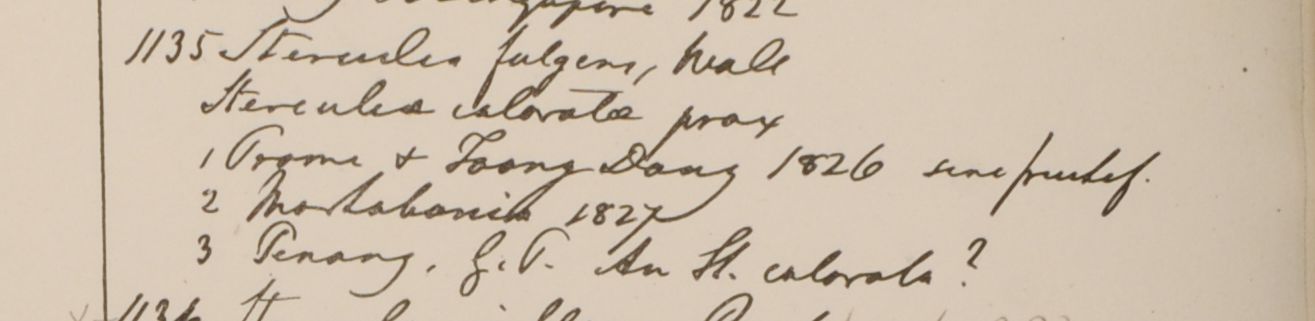 Singapore 1822
1135 Sterculia fulgens, Wall
Sterculiae coloratae prox
1 Prome & Toong Dong 1826 sine fructif.
2 Martabania 1827
3 Penang, G.P. An St. colorata?
1136